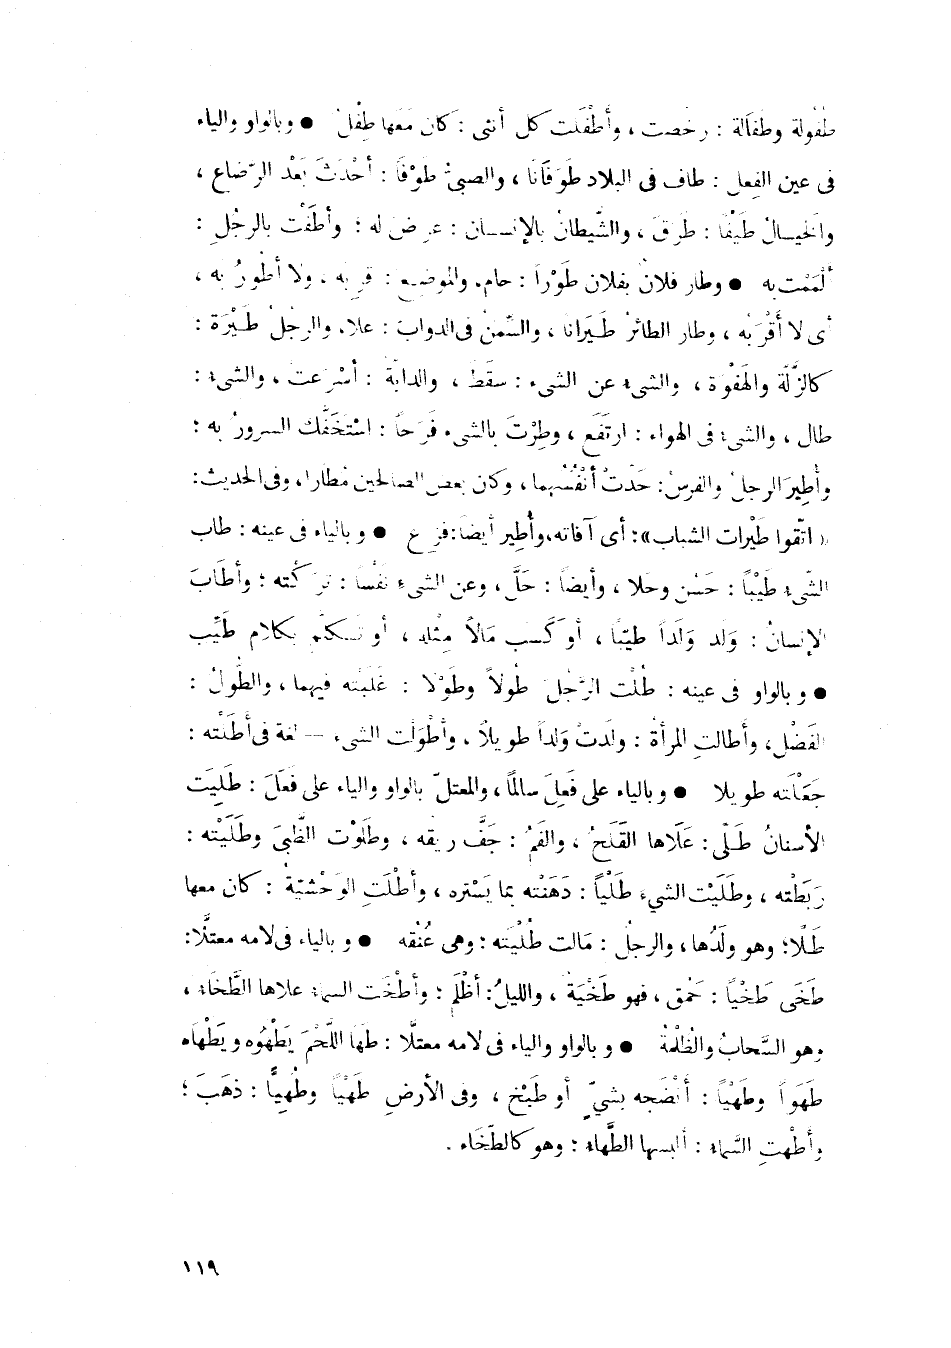 طُفُولة وطَفَالة : رخصت ، وأطْفَلت كل أنثى : كان مَعَها طِفْلٌ ● وبالواو والياء
فى عين الفِعل : طاف فى البلاد طَوَفَانَا ، والصبىُّ طَوْفَا : أحْدَثَ بَعْد الرّضاع ،
والخيالُ طَيْفًا : طَرَقَ ، والشَّيطانُ بالإنسان : عرض له ؛ وأطَفْت بالرجُلِ :
ألْمَمْت به ● وطار فلانٌ بفلان طَوْراً : حام. والموضِعَ : قربه ، ولا أطُورُ به ،
أى لا أَقْرَبُه ، وطار الطائرُ طَيَرَانا ، والسِّمنُ فى الدواب : علا. والرجُلُ طَيْرَة :
كالزَّلّة والهَفْوَة ، والشىءُ عن الشىء : سقَطَ ، والدابّة : أسْرعت ، والشىءُ :
طال ، والشىءُ فى الهواء : ارتَفَع ، وطِرْتَ بالشىء فَرَحاً : اسْتَخَفَّك السرورُ به ؛
وأُطِيرَ الرجلُ والفرسُ: حَدّتْ أنْفُسُهما، وكان بعض الصالحين مُطارا، وفى الحديث:
« اتّقوا طَيْرات الشباب»: أى آفاته، وأُطِير أيضًا: فزِع ● وبالياء فى عينه : طاب
الشّىءُ طَيْبًا : حَسُن وحَلا ، وأيضاً : حَلَّ، وعن الشىءِ نَفْسًا : تَرَكْته ؛ وأطَابَ
الإنسانُ : وَلد وَلَداً طيّبا ، أو كَسب مَالاً مِثْله ، أو تَسكلّم بكلام طَيِّب
● وبالواو فى عينه : طُلْت الرَّجُلَ طُولاً وطَوْلا : غَلَبْته فيهما ، والطَّوْلُ :
الفَضْل، وأطالتِ المرأة : ولَدتْ وَلَداً طويلاً . وأطْوَلْت الشىء — لغة فى أطَلْته :
جَعَلْته طويلا ● وبالياء على فَعِلَ سالمًا، والمعتلّ بالواو والياء على فَعَلَ : طَلِيَت
الأسنانُ طَلًى : عَلَاها القَلَحُ ، والفَمُ : جَفَّ ريقه ، وطَلَوْت الظَّبىَ وطَلَيْته :
رَبَطْته ، وطَلَيْت الشىءَ طَلْياً : دَهَنْته بما يَسْتره ، وأطْلَتِ الوَحْشيّة : كان معها
طَلًا؛ وهو ولَدُها، والرجلُ : مَالت طُلْيَته ؛ وهى عُنْقه ● وبالياء فى لامه معتلًّا:
طَخَى طَخْيًا : حَمُق ، فهو طَخْيَة ، والليلُ: أظْلَم ؛ وأطْخَت السماءُ علاها الطَّخَاء ،
وهو السَّحابُ والظُّلْمَةُ ● وبالواو والياء فى لامه معتلًّا : طَهَا اللَّحْمَ يَطْهُوه ويَطْهَاه
طَهَواً وطَهْيًا : أَنْضَجه بشىٍّ أو طَبْخ ، وفى الأرضِ طَهْيًا وطُهِيًّا : ذهَبَ ؛
وأطْهتِ السَّماءُ : ألبسها الطَّهاء ؛ وهو كالطّخَاء .
١١٩